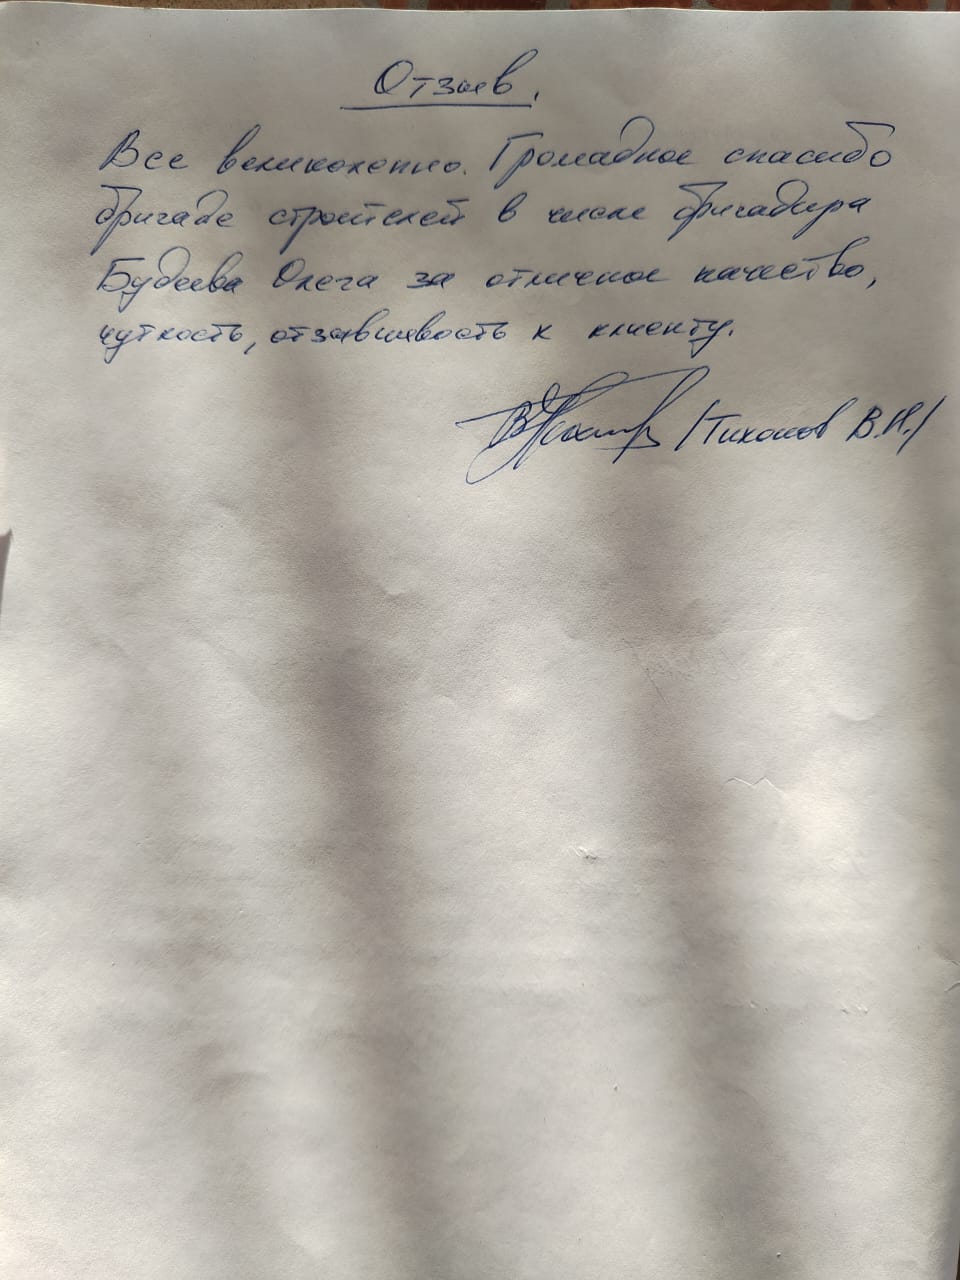 Отзыв.
Все великолепно. Громадное спасибо
бригаде строителей в числе бригадира
Будеева Олега за отличное качество,
чуткость, отзывчивость к клиенту.
/Тихонов В.И./